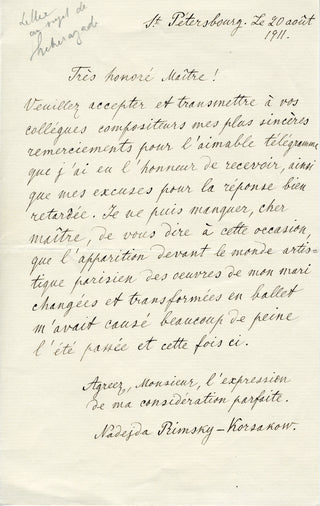 Lettre
au sujet de
Scheherazade
St. Pétersbourg. Le 20 août
1911.
Très honoré Maître !
Veuillez accepter et transmettre à vos
collègues compositeurs mes plus sincères
remerciements pour l'aimable télégramme
que j'ai eu l'honneur de recevoir, ainsi
que mes excuses pour la réponse bien
retardée. Je ne puis manquer, cher
maître, de vous dire à cette occasion,
que l'apparition devant le monde artis=
tique parisien des œuvres de mon mari
changées et transformées en ballet
m'avait causé beaucoup de peine
l'été passée et cette fois ci.
Agréez, Monsieur, l'expression
de ma considération parfaite.
Nadejda Rimsky-Korsakow.